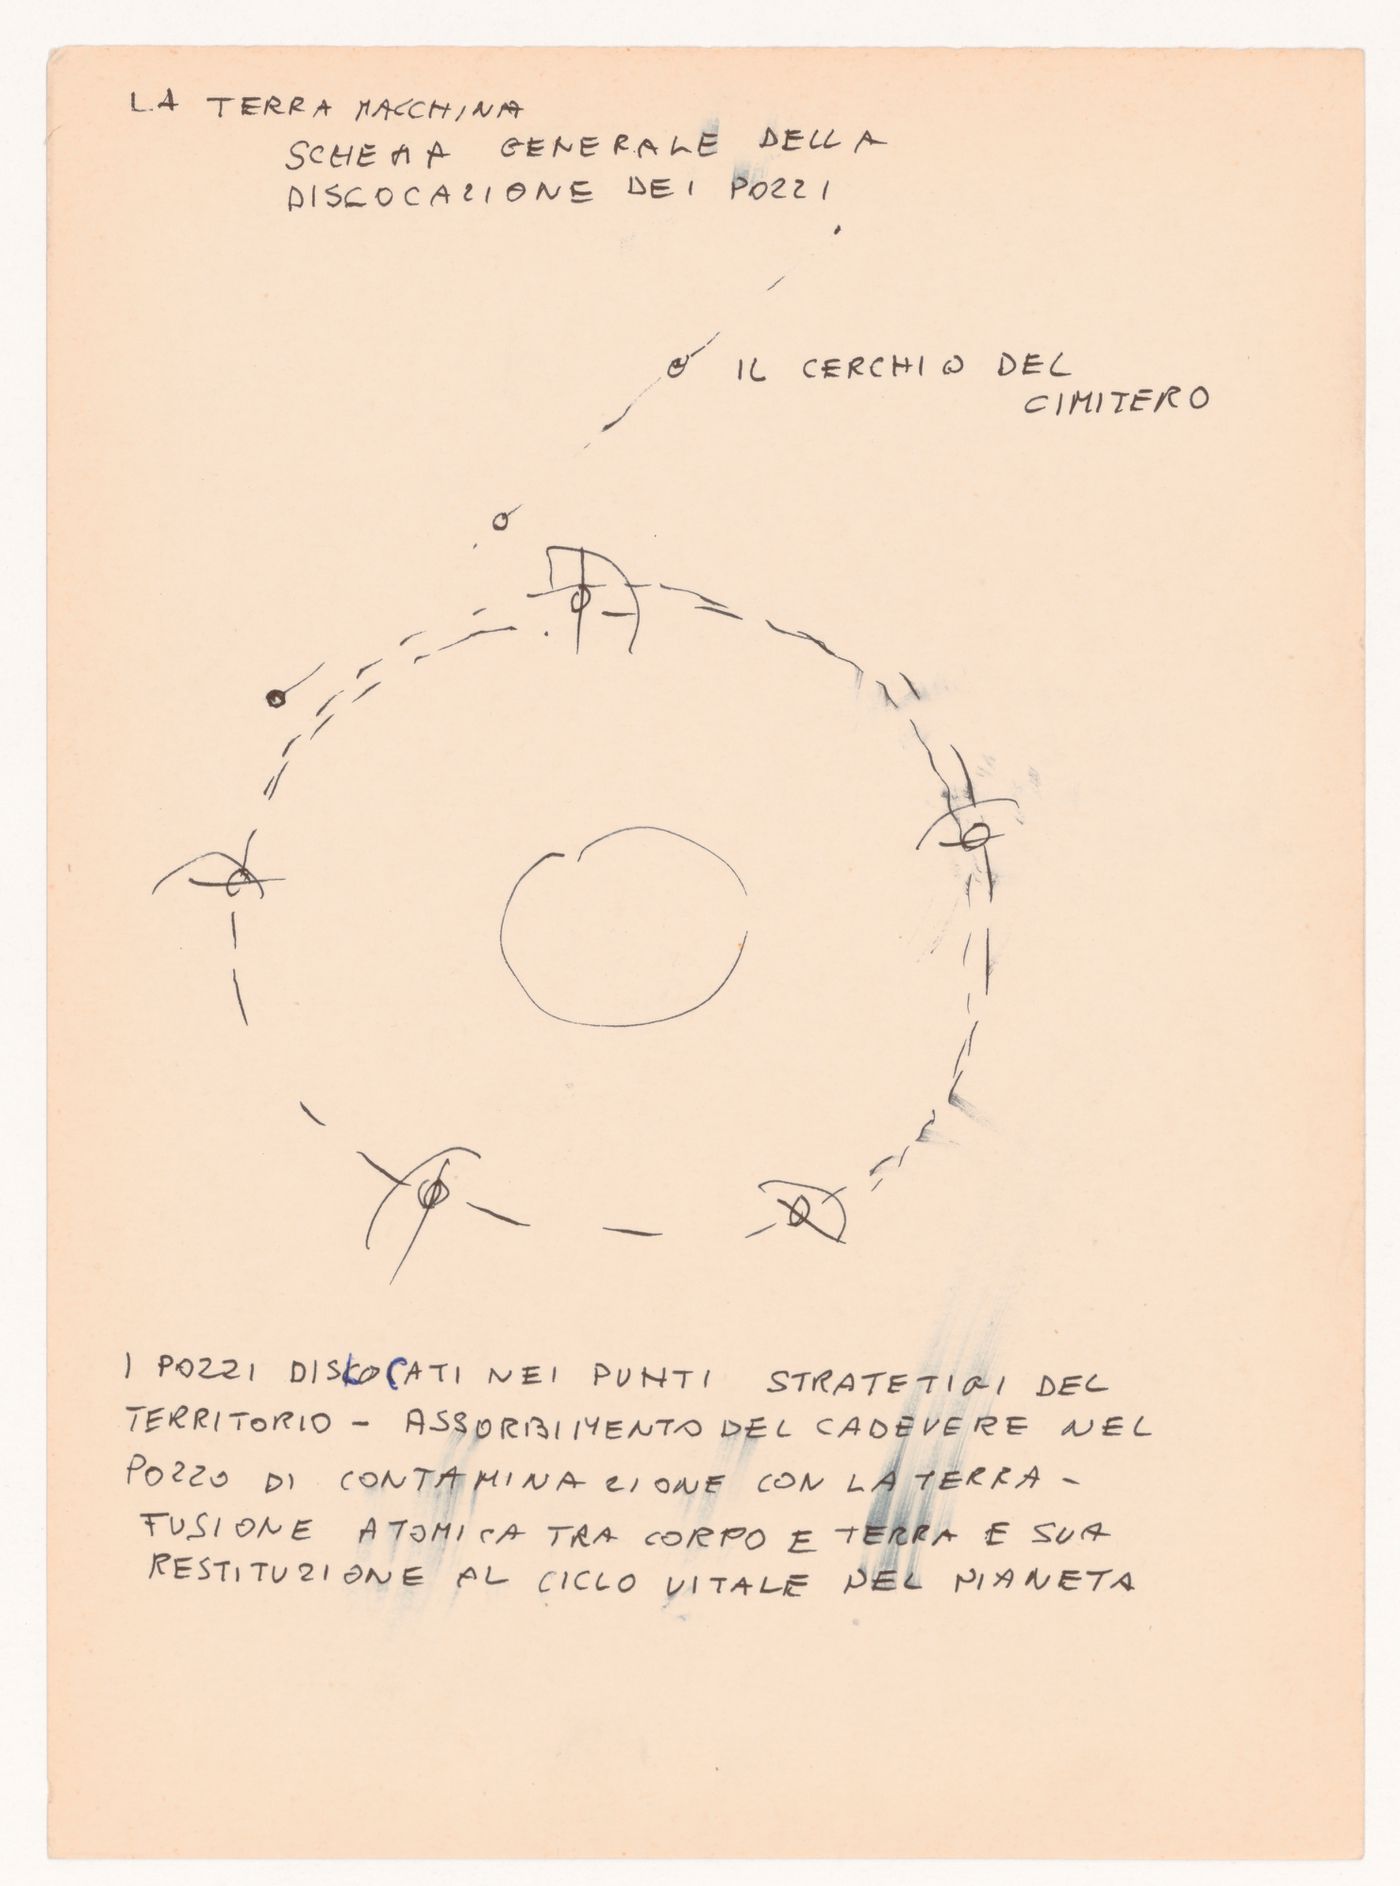 LA TERRA MACCHINA
SCHEMA GENERALE DELLA
DISLOCAZIONE DEI POZZI
IL CERCHIO DEL
CIMITERO
I POZZI DISLOCATI NEI PUNTI STRATETIGI DEL
TERRITORIO - ASSORBIMENTO DEL CADEVERE NEL
POZZO DI CONTAMINAZIONE CON LA TERRA -
FUSIONE ATOMICA TRA CORPO E TERRA E SUA
RESTITUZIONE AL CICLO VITALE DEL PIANETA